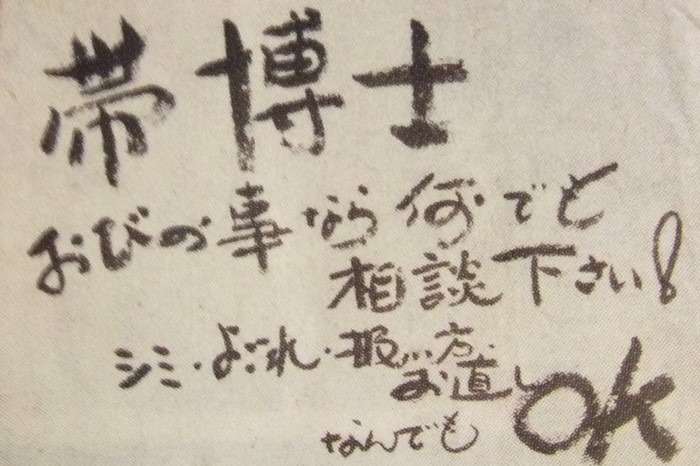 帯博士
おびの事なら何でも
相談下さい!
シミ・よごれ・扱い方・
お直し
なんでもOK